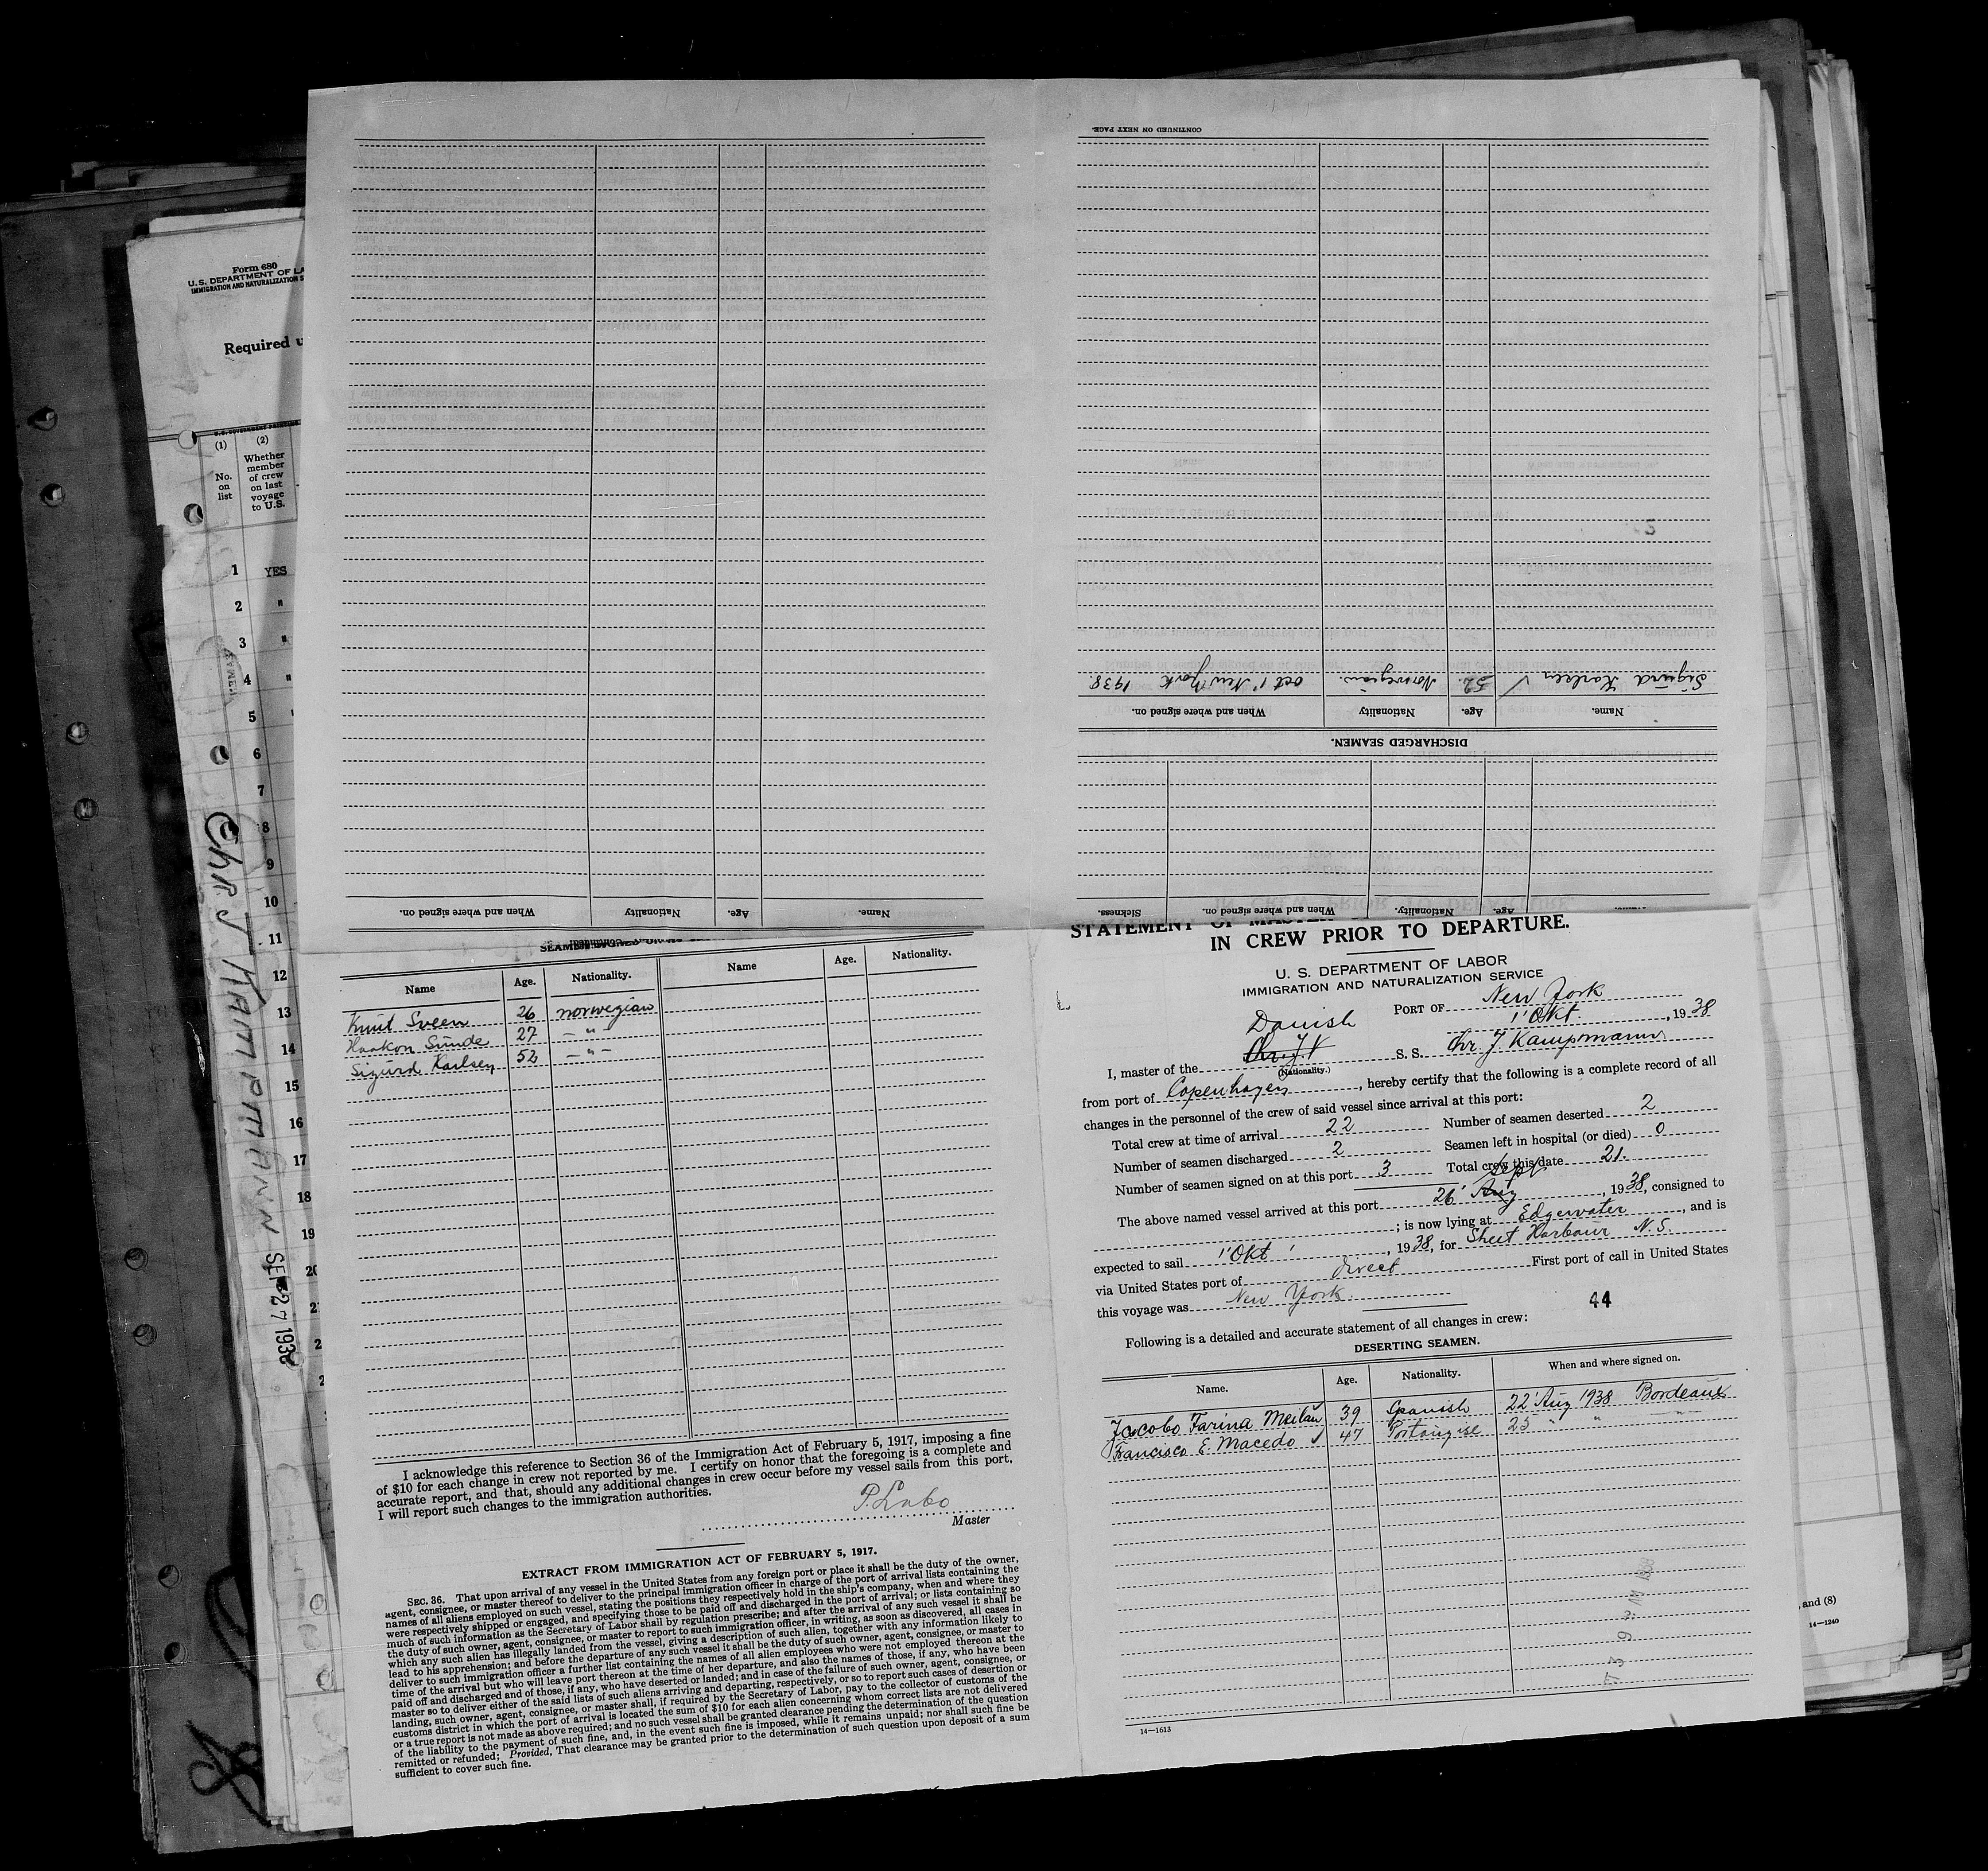 Form 680
U.S. DEPARTMENT OF LA
IMMIGRATION AND NATURALIZATION S
Required u
(1)
(2)
No.
on
list
Whether
member
of crew
on last
voyage
to U.S.
1 YES
2 "
3 "
4 "
5 "
6
7
8
9
10
11
12
13
14
15
16
17
18
19
20
Chr J KAMPMANN SEP 27 1938
CONTINUED ON NEXT PAGE.
Sigurd Karlsen √ 52. Norwegian. oct 1' New York 1938.
Name. Age. Nationality When and where signed on.
DISCHARGED SEAMEN.
Name. Age. Nationality When and where signed on.
Age. Nationality. When and where signed on. Sickness.
Name Age. Nationality. Name Age. Nationality.
Knut Sveen 26 norwegian
Haakon Sunde 27 — " —
Sigurd Karlsen 52 — " —
I acknowledge this reference to Section 36 of the Immigration Act of February 5, 1917, imposing a fine
of $10 for each change in crew not reported by me. I certify on honor that the foregoing is a complete and
accurate report, and that, should any additional changes in crew occur before my vessel sails from this port,
I will report such changes to the immigration authorities.
Master
EXTRACT FROM IMMIGRATION ACT OF FEBRUARY 5, 1917.
SEC. 36. That upon arrival of any vessel in the United States from any foreign port or place it shall be the duty of the owner,
agent, consignee, or master thereof to deliver to the principal immigration officer in charge of the port of arrival lists containing the
names of all aliens employed on such vessel, stating the positions they respectively hold in the ship's company, when and where they
were respectively shipped or engaged, and specifying those to be paid off and discharged in the port of arrival; or lists containing so
much of such information as the Secretary of Labor shall by regulation prescribe; and after the arrival of any such vessel it shall be
the duty of such owner, agent, consignee, or master to report to such immigration officer, in writing, as soon as discovered, all cases in
which any such alien has illegally landed from the vessel, giving a description of such alien, together with any information likely to
lead to his apprehension; and before the departure of any such vessel it shall be the duty of such owner, agent, consignee, or master to
deliver to such immigration officer a further list containing the names of all alien employees who were not employed thereon at the
time of the arrival but who will leave port thereon at the time of her departure, and also the names of those, if any, who have been
paid off and discharged and of those, if any, who have deserted or landed; and in case of the failure of such owner, agent, consignee, or
master so to deliver either of the said lists of such aliens arriving and departing, respectively, or so to report such cases of desertion or
landing, such owner, agent, consignee, or master shall, if required by the Secretary of Labor, pay to the collector of customs of the
customs district in which the port of arrival is located the sum of $10 for each alien concerning whom correct lists are not delivered
or a true report is not made as above required; and no such vessel shall be granted clearance pending the determination of the question
of the liability to the payment of such fine, and, in the event such fine is imposed, while it remains unpaid; nor shall such fine be
remitted or refunded; Provided, That clearance may be granted prior to the determination of such question upon deposit of a sum
sufficient to cover such fine.
STATEMENT OF MASTER
IN CREW PRIOR TO DEPARTURE.
U. S. DEPARTMENT OF LABOR
IMMIGRATION AND NATURALIZATION SERVICE
PORT OF New York
1' Okt , 1938
Danish
I, master of the S. S. Chr. J. Kampmann
(Nationality.)
from port of Copenhagen , hereby certify that the following is a complete record of all
changes in the personnel of the crew of said vessel since arrival at this port:
Total crew at time of arrival 22 Number of seamen deserted 2
Number of seamen discharged 2 Seamen left in hospital (or died) 0
Number of seamen signed on at this port 3 Total crew this date 21.
Sept
The above named vessel arrived at this port 26' Aug , 1938, consigned to
; is now lying at Edgewater , and is
expected to sail 1' Okt ' , 1938, for Sheet Harbour N.S.
via United States port of direct First port of call in United States
this voyage was New York.
44
Following is a detailed and accurate statement of all changes in crew:
DESERTING SEAMEN.
Name. Age. Nationality. When and where signed on.
Jacobo Farina Meilan 39 Spanish 22' Aug 1938 Bordeaux
Francisco E. Macedo √ 47 Portongise 25 " " — " —
14—1613
, and (8)
14—1240